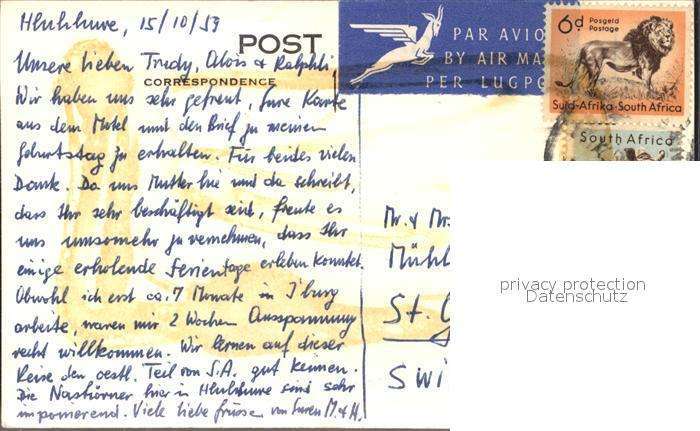 Hluhluwe, 15/10/59
POST
CORRESPONDENCE
Unsere lieben Trudy, Alois & Ralphli
Wir haben uns sehr gefreut, Eure Karte
aus dem Motel und den Brief zu meinem
Geburtstag zu erhalten. Für beides vielen
Dank. Da uns Mutter hie und da schreibt,
dass Ihr sehr beschäftigt seid, freute es
uns umsomehr zu vernehmen, dass Ihr
einige erholende Ferientage erleben konntet.
Obwohl ich erst ca. 7 Monate in J'burg
arbeite, waren mir 2 Wochen Ausspannung
recht willkommen. Wir lernen auf dieser
Reise den oestl. Teil von S.A. gut kennen.
Die Nashörner hier in Hluhluwe sind sehr
imponierend. Viele liebe Grüsse von Euren M. & H.
PAR AVIO
BY AIR MA
PER LUGPO
6d Posgeld
Postage
Suid-Afrika-South Africa
South Africa
Mr. & Mr
Mühl
St. G
Swi
privacy protection
Datenschutz